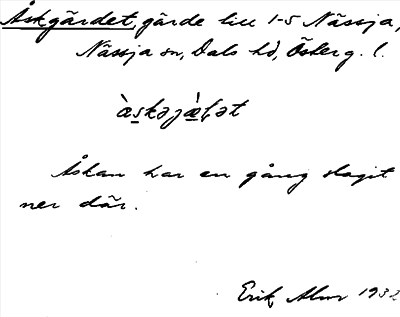 Åskgärdet, gärde till 1-5 Nässja,
Nässja sn, Dals hd, Österg. l.
àskəjæ̀ḷət
Åskan har en gång slagit
ner där.
Erik Abur 1932